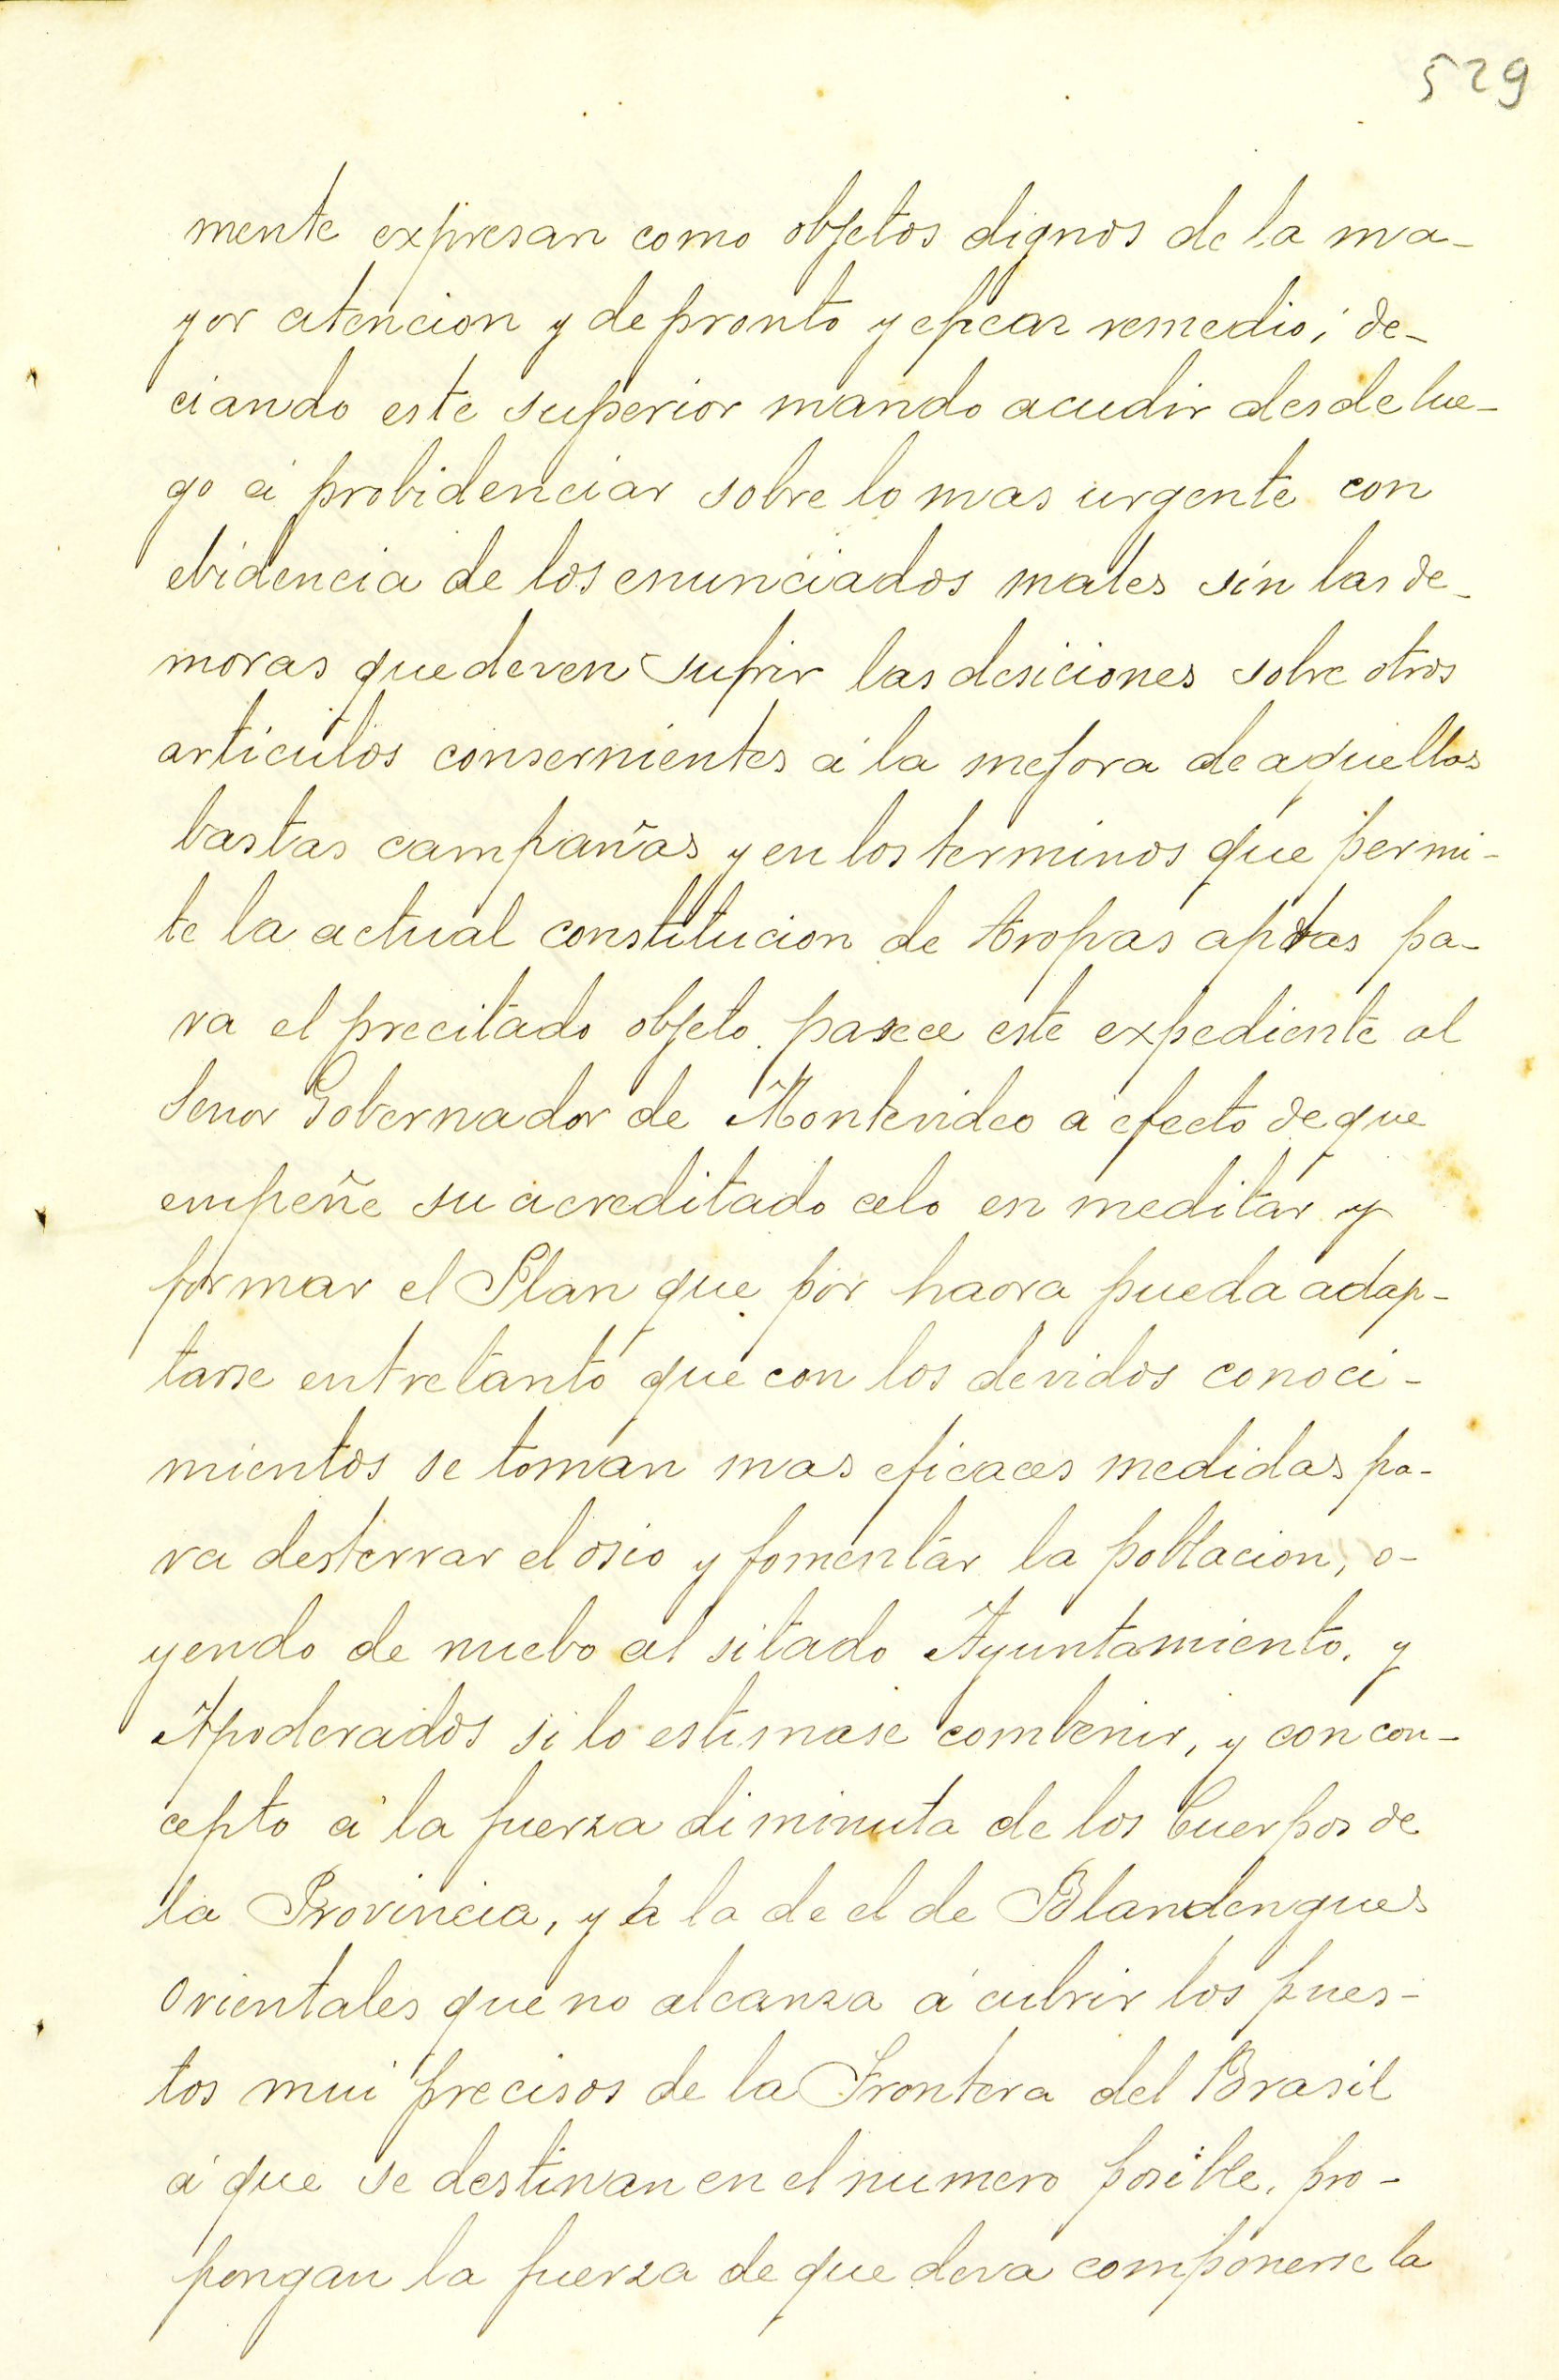 529
mente expresan como objetos dignos de la ma-
yor atencion y de pronto y eficaz remedio; de-
ciando este superior mando acudir desde lue-
go á probidenciar sobre lo mas urgente con
ebidencia de los enunciados males sin las de-
moras que deven sufrir las desiciones sobre otros
articulos consernientes á la mejora de aquellas
bastas campañas y en los terminos que permi-
te la actual constitucion de tropas aptas pa-
ra el precitado objeto. pasece este expediente al
Senor Gobernador de Montevideo a efecto de que
empeñe su acreditado celo en meditar y
formar el Plan que por haora pueda adap-
tarse entretanto que con los devidos conoci-
mientos se toman mas eficaces medidas pa-
ra desterrar el osio y fomentar la poblacion, o-
yendo de nuebo al sitado Ayuntamiento. y
Apoderados si lo estimase combenir, y con con-
cepto á la fuerza diminuta de los Cuerpos de
la Provincia, y á la de el de Blandengues
Orientales que no alcanza á cubrir los pues-
tos mui precisos de la Frontera del Brasil
á que se destinan en el numero posible. pro-
pongan la fuerza de que deva componerse la